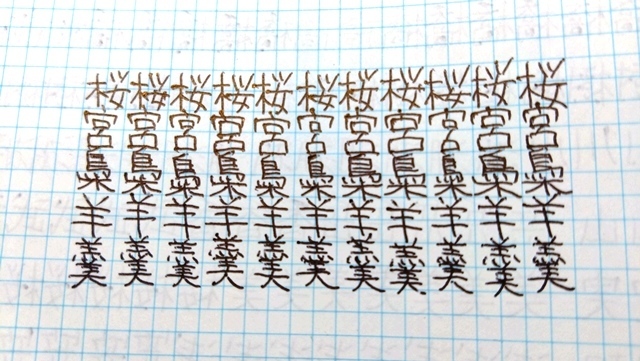 桜桜桜桜桜桜桜桜桜桜桜
宮宮宮宮宮宮宮宮宮宮宮
梟梟梟梟梟梟梟梟梟梟梟
羊羊羊羊羊羊羊羊羊羊羊
羹羹羹羹羹羹羹羹羹羹羹